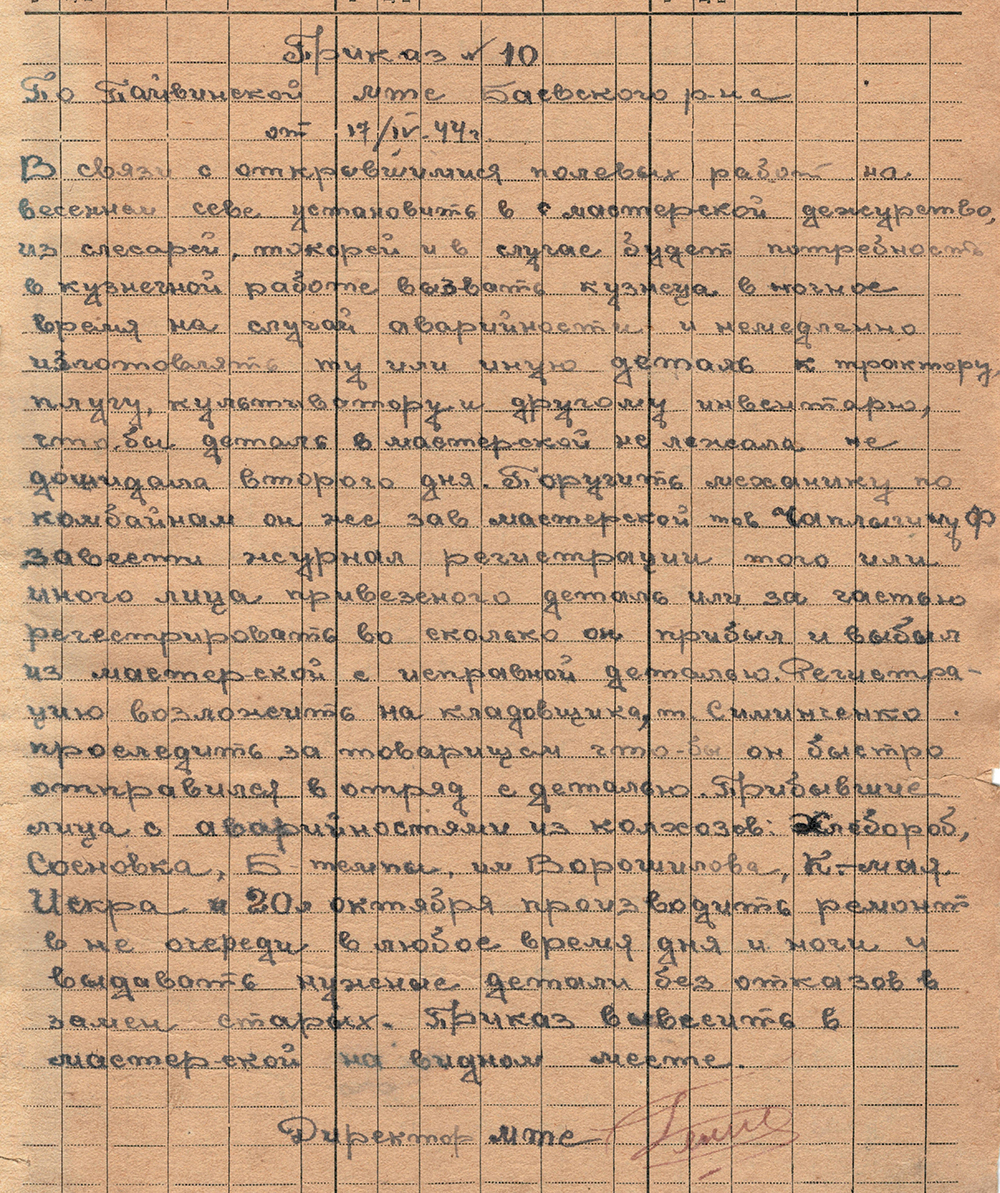 Приказ № 10
По Пайвинской мтс Баевского р-на
от 17/IV-44 г.
В связи с открывшимися полевых работ на
весеннем севе установить в мастерской дежурство,
из слесарей, токорей и в случае будет потребность
в кузнечной работе вызвать кузнеца в ночное
время на случай аварийности и немедленно
изготовлять ту или иную деталь к трактору,
плугу, культиватору и другому инвентарю,
что.бы деталь в мастерской не лежала не
дожидала второго дня. Поручить механику по
комбайнам он же зав мастерской тов Чаплыгину Ф
завести журнал регистрации того или
иного лица привезеного деталь или за частью
регестрировать во сколько он прибыл и выбыл
из мастерской с исправной деталью. Регистра-
цию возложить на кладовщика, т. Симинченко.
проследить за товарищем что-бы он быстро
отправился в отряд с деталью. Прибывшие
лица с аварийностями из колхозов: Хлебороб,
Сосновка, Б-темпы, им Ворошилова, К.-мая
Искра и 20 л октября производить ремонт
в не очереди в любое время дня и ночи и
выдавать нужные детали без отказов в
замен старых. Приказ вывесить в
мастерской на видном месте.
Директор мтс